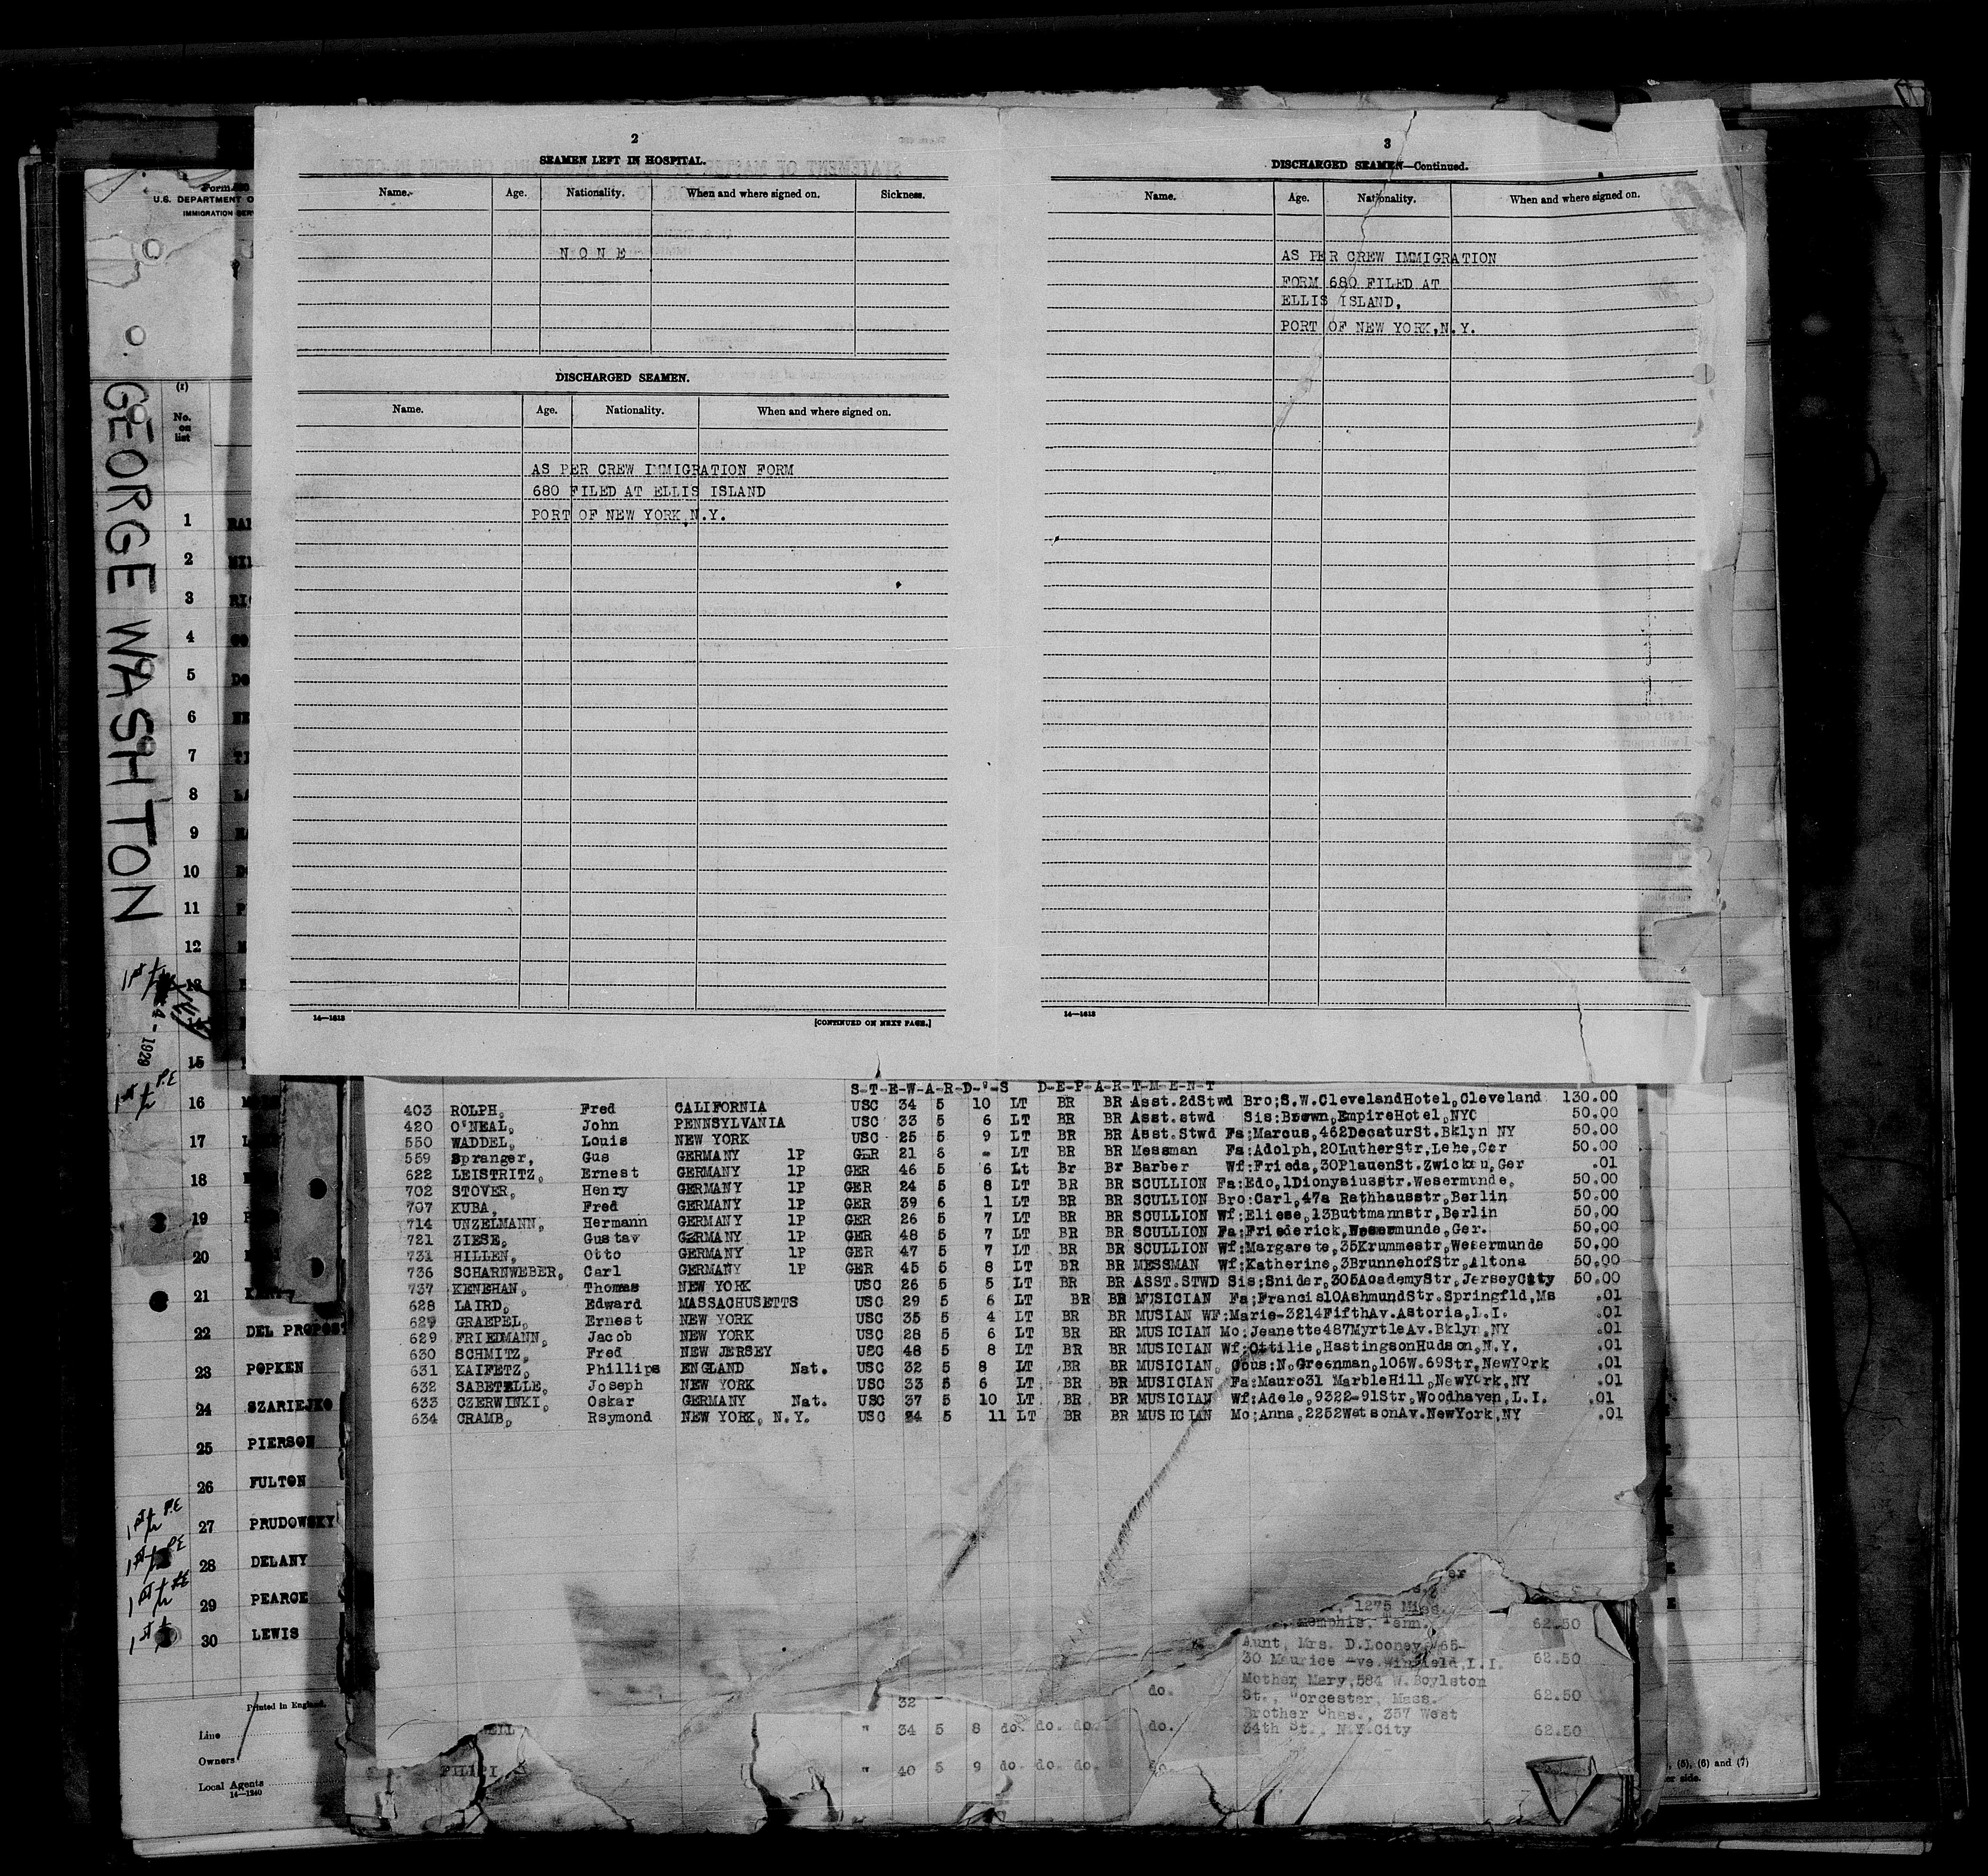 2
SEAMEN LEFT IN HOSPITAL.
Name. Age. Nationality. When and where signed on. Sickness.
N O N E
DISCHARGED SEAMEN.
Name. Age. Nationality. When and where signed on.
AS PER CREW IMMIGRATION FORM
680 FILED AT ELLIS ISLAND
PORT OF NEW YORK,N.Y.
14—1613
[CONTINUED ON NEXT PAGE.]
3
DISCHARGED SEAMEN—Continued.
Name. Age. Nationality. When and where signed on.
AS PER CREW IMMIGRATION
FORM 680 FILED AT
ELLIS ISLAND,
PORT OF NEW YORK,N.Y.
14—1613
Form
U.S. DEPARTMENT O
IMMIGRATION SER
GEORGE WASHTON
(1)
No.
on
list
1
2
3 RI
4
5 DO
6
7
8
9
10
11
12
13
4 - 1929
15
16
17
18
19
20
21
22 DEL PROPOST
23 POPKEN
24 SZARIEJKO
25 PIERSON
26 FULTON
27 PRUDOWSKY
28 DELANY
29 PEARCE
30 LEWIS
Printed in England.
Line
Owners
Local Agents
14—1240
S-T-E-W-A-R-D-'-S D-E-P-A-R-T-M-E-N-T
403 ROLPH, Fred CALIFORNIA USC 34 5 10 LT BR BR Asst.2dStwd Bro;S.W.ClevelandHotel,Cleveland 130.00
420 O'NEAL, John PENNSYLVANIA USC 33 5 6 LT BR BR Asst.stwd Sis:Brown,EmpireHotel,NYC 50.00
550 WADDEL, Louis NEW YORK USC 25 5 9 LT BR BR Asst.Stwd Fa;Marcus,462DecaturSt.Bklyn NY 50.00
559 Spranger, Gus GERMANY 1P GER 21 6 - LT BR BR Messman Fa;Adolph,20LutherStr,Lehe,Ger 50.00
622 LEISTRITZ, Ernest GERMANY 1P GER 46 5 6 Lt Br Br Barber Wf:Frieda,30PlauenSt.Zwickau,Ger .01
702 STOVER, Henry GERMANY 1P GER 24 5 8 LT BR BR SCULLION Fa:Edo,1Dionysiusstr.Wesermunde, 50.00
707 KUBA, Fred GERMANY 1P GER 39 6 1 LT BR BR SCULLION Bro:Carl,47a Rathhausstr,Berlin 50.00
714 UNZELMANN, Hermann GERMANY 1P GER 26 5 7 LT BR BR SCULLION Wf:Eliese,13Buttmannstr,Berlin 50.00
721 ZIESE, Gustav GERMANY 1P GER 48 5 7 LT BR BR SCULLION Fa;Friederick,Wesermunde,Ger. 50.00
731 HILLEN, Otto GERMANY 1P GER 47 5 7 LT BR BR SCULLION Wf:Margarete,35Krummestr,Wesermunde 50.00
736 SCHARNWEBER, Carl GERMANY 1P GER 45 5 8 LT BR BR MESSMAN Wf:Katherine,3BrunnehofStr,Altona 50.00
737 KENEHAN, Thomas NEW YORK USC 26 5 5 LT BR BR ASST.STWD Sis;Snider,305AcademyStr,JerseyCity 50.00
628 LAIRD, Edward MASSACHUSETTS USC 29 5 6 LT BR BR MUSICIAN Fa;Francis10AshmundStr.Springfld,Ms .01
627 GRAEPEL, Ernest NEW YORK USC 35 5 4 LT BR BR MUSIAN WF:Marie-3214FifthAv.Astoria,L.I. .01
629 FRIEDMANN, Jacob NEW YORK USC 28 5 6 LT BR BR MUSICIAN Mo;Jeanette487MyrtleAv.Bklyn,NY .01
630 SCHMITZ, Fred NEW JERSEY USC 48 5 8 LT BR BR MUSICIAN Wf:Ottilie,HastingsonHudson,N.Y. .01
631 KAIFETZ, Phillips ENGLAND Nat. USC 32 5 8 LT BR BR MUSICIAN, Cous:N.Greenman,106W.69Str,NewYork .01
632 SABETELLE, Joseph NEW YORK USC 33 5 6 LT BR BR MUSICIAN Fa:Mauro31 MarbleHill,NewYork,NY .01
633 CZERWINKI, Oskar GERMANY Nat. USC 37 5 10 LT BR BR MUSICIAN Wf:Adele,9322-91Str,Woodhaven,L.I. .01
634 CRAMB, Raymond NEW YORK, N.Y. USC 24 5 11 LT BR BR MUSICIAN Mo;Anna,2252WatsonAv.NewYork,NY .01
1275 Miss.
Memphis, Tenn. 62.50
Aunt, Mrs. D.Looney, 65-
30 Maurice Ave.Winfield,L.I. 62.50
Mother Mary,584 W.Boylston
32 do. St., Worcester, Mass. 62.50
Brother Chas., 357 West
" 34 5 8 do. do. do. do. 34th St., N.Y.City 62.50
" 40 5 9 do. do. do. do.
, (5), (6) and (7)
er side.